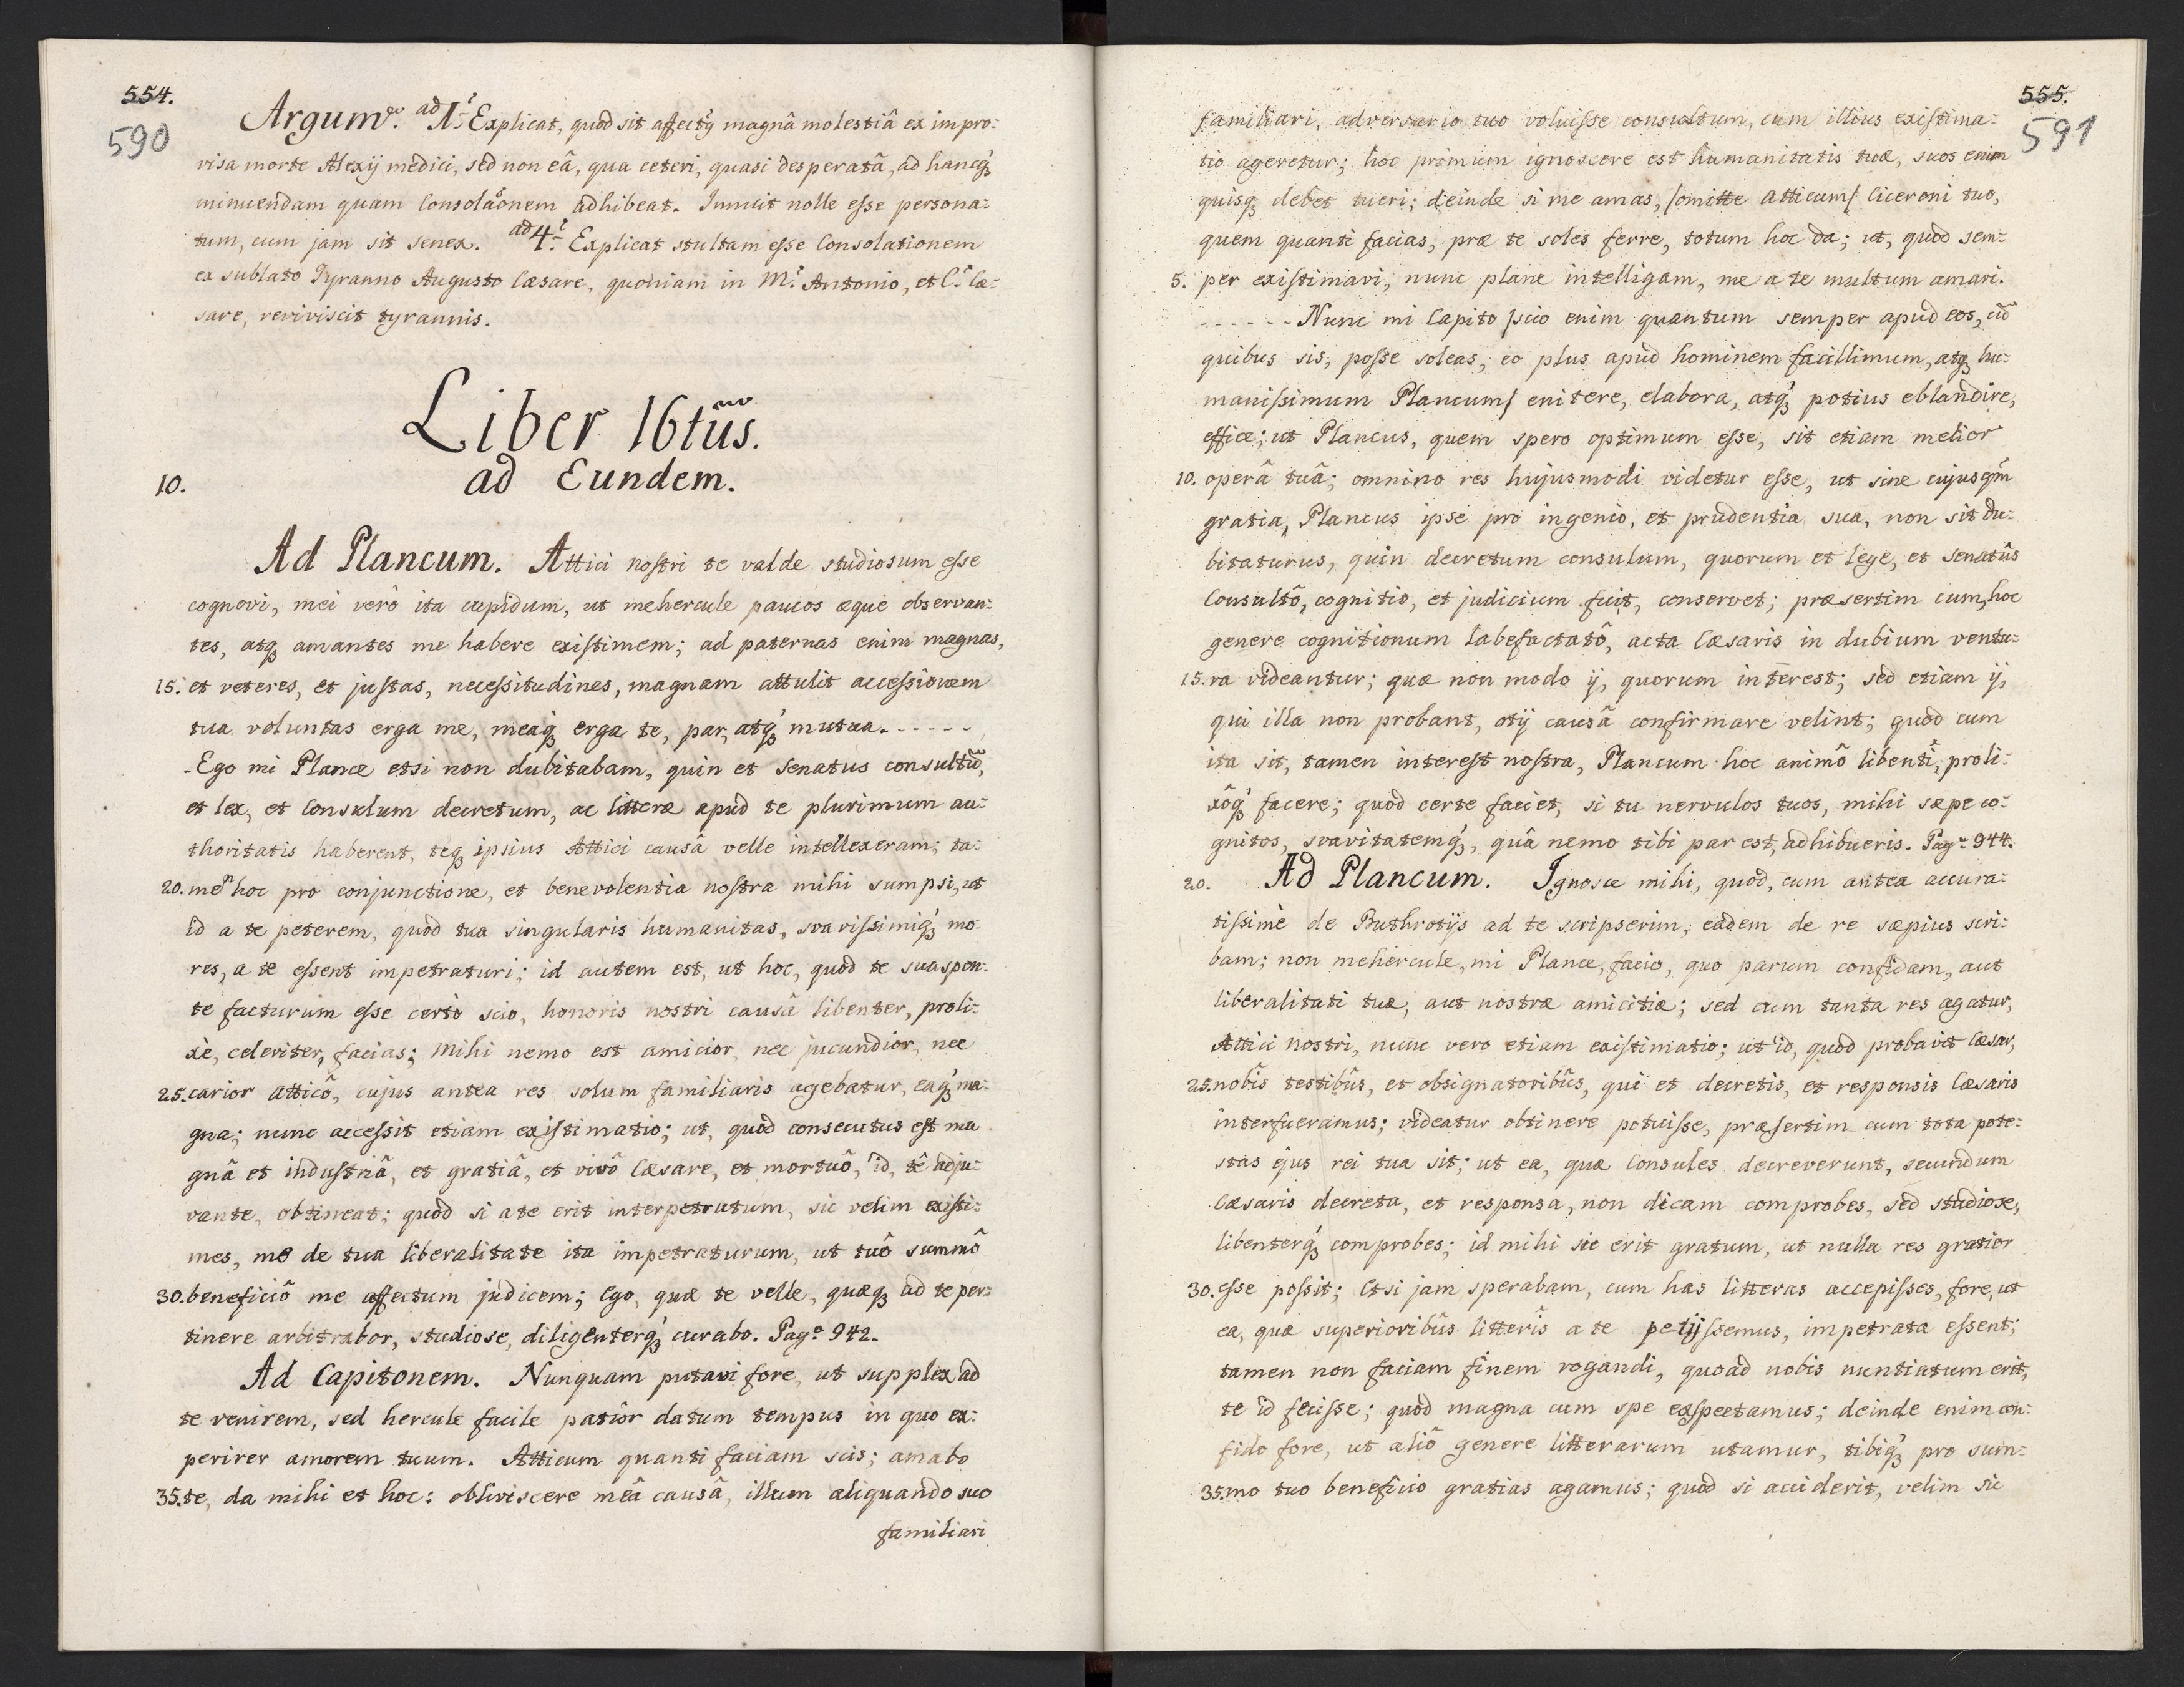 554.
590
Argumᵗᵒ. ad 1ᵉ Explicat, quod sit affectq́ magnâ molestiâ ex impro:
visa morte Alexÿ medici, sed non eâ, qua ceteri, quasi desperatâ, ad hancq́ꝫ
minuendam quam Consolaõnem adhibeat. Innuit nolle esse persona:
tum, cum jam sit senex. ad 4ᵉ Explicat stultam esse Consolationem
ex sublato Tyranno Augusto Cæsare, quoniam in M: Antonio, et C: Cæ:
sare, reviviscit tyrannis.
Liber 16tus.
10. ad Eundem.
Ad Plancum. Attici nostri te valde studiosum esse
cognovi, mei verò ita cupidum, ut mehercule paucos æque observan:
tes, atqꝫ amantes me habere existimem; ad paternas enim magnas,
15. et veteres, et justas, necessitudines, magnam attulit accessionem
tua voluntas erga me, meaqꝫ erga te, par, atq́ꝫ mutua.------
-Ego mi Plance etsi non dubitabam, quin et senatus consultũ,
et lex, et Consulum decretum, ac litteræ apud te plurimum au:
thoritatis haberent, teqꝫ ipsius Attici causâ velle intellexeram; ta:
20. meñ hoc pro conjunctione, et benevolentia nostra mihi sumpsi, ut
id a te peterem, quod tua singularis humanitas, svavissimiq́ꝫ mo:
res, a te essent impetraturi; id autem est, ut hoc, quod te sua spon:
te facturum esse certò scio, honoris nostri causâ libenter, proli:
xè, celeriter, facias; Mihi nemo est amicior, nec jucundior, nec
25. carior atticô, cujus antea res solum familiaris agebatur, eaq́ꝫ ma:
gna; nunc accessit etiam existimatio; ut, quod consecutus est ma
gnâ et industriâ, et gratiâ, et vivô Cæsare, et mortuô, id, tê adju:
vante, obtineat; quod si a te erit interpetratum, sic velim existi:
mes, me de tua liberalitate ita impetraturum, ut tuô summô
30. beneficiô me affectum judicem; Ego, quæ te velle, quæqꝫ ad te per:
tinere arbitrabor, studiose, diligenterq́ꝫ curabo. Pagᵃ 942.
Ad Capitonem. Nunquam putavi fore, ut supplex ad
te venirem, sed hercule facile patior datum tempus in quo ex:
perirer amorem tuum. Atticum quanti faciam scis; amabo
35. te, da mihi et hoc: obliviscere meâ causâ, illum aliquando suo
familiari
555.
591
familiari, adversario tuo voluisse consultum, cum illius existima:
tio ageretur; hoc primum ignoscere est humanitatis tuæ, suos enim
quisqꝫ debet tueri; deinde si me amas, /omitte Atticum/ Ciceroni tuo,
quem quanti facias, præ te soles ferre, totum hoc da; ut, quod sem:
5. per existimavi, nunc plane intelligam, me a te multum amari.
------Nunc mi Capito /scio enim quantum semper apud eos, cũ
quibus sis, posse soleas, eo plus apud hominem facillimum, atqꝫ hu:
manissimum Plancum/ enitere, elabora, atq́ꝫ potius eblandire,
effice; ut Plancus, quem spero optimum esse, sit etiam melior
10. operâ tuâ; omnino res hujusmodi videtur esse, ut sine cujusqm̃
gratia, Plancus ipse pro ingenio, et prudentia sua, non sit du:
bitaturus, quin decretum consulum, quorum et lege, et senatûs
Consultô, cognitio, et judicium fuit, conservet; præsertim cum, hoc
genere cognitionum labefactatô, acta Cæsaris in dubium ventu:
15. ra videantur; quæ non modo ÿ, quorum interest; sed etiam ÿ,
qui illa non probant, otÿ causâ confirmare velint; quod cum
ita sit, tamen interest nostra, Plancum hoc animô libenti, proli:
xôq́ꝫ facere; quod certe faciet, si tu nervulos tuos, mihi sæpe co:
gnitos, svavitatemq́ꝫ, quâ nemo tibi par est, adhibueris. Pagᵃ 944.
20. Ad Plancum. Ignosce mihi, quod, cum antea accura:
tissimè de Buthrotÿs ad te scripserim, eadem de re sæpius scri:
bam; non mehercule, mi Plance, facio, quo parum confidam, aut
liberalitati tuæ, aut nostræ amicitiæ; sed cum tanta res agatur,
Attici nostri, nunc vero etiam existimatio; ut id, quod probavit Cæsar,
25. nobîs testibûs, et obsignatoribûs, qui et decretis, et responsis Cæsaris
interfueramus; videatur obtinere potuisse, præsertim cum tota pote:
stas ejus rei tua sit; ut ea, quæ Consules decreverunt, secundum
Cæsaris decreta, et responsa, non dicam comprobes, sed studiose,
libenterq́ꝫ comprobes; id mihi sic erit gratum, ut nulla res gratior
30. esse possit; Etsi jam sperabam, cum has litteras accepisses, fore, ut
ea, quæ superioribûs litterîs a te petÿssemus, impetrata essent;
tamen non faciam finem rogandi, quoad nobis nuntiatum erit,
te id fecisse; quod magna cum spe exspectamus; deinde enim con:
fido fore, ut aliô genere litterarum utamur, tibiq́ꝫ pro sum:
35. mo tuo beneficio gratias agamus; quod si acciderit, velim sic